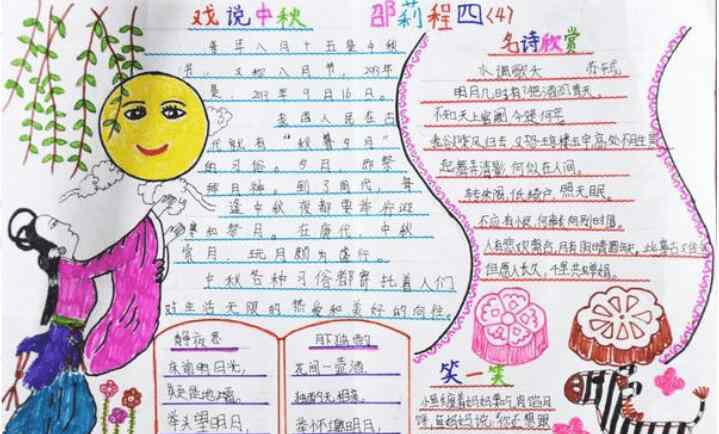 戏说中秋
邵莉程四(4)
每年八月十五是中秋
节，又称八月节，2013年
是，2013年9月16日。
我国人民在古
代就有“秋暮夕月”
的习俗。夕月，即祭
拜月神。到了周代，每
逢中秋夜都要举行迎
寒和祭月。在唐代，中秋
赏月，玩月颇为盛行。
中秋各种习俗都寄托着人们
对生活无限的热爱和美好的向往。
静夜思
床前明月光，
疑是地上霜。
举头望明月，
月下独酌
花间一壶酒，
独酌无相亲。
举杯邀明月，
名诗欣赏
水调歌头
明月几时有？把酒问青天。
不知天上宫阙，今夕是何年。
我欲乘风归去，又恐琼楼玉宇，高处不胜寒
起舞弄清影，何似在人间。
转朱阁，低绮户，照无眠。
不应有恨，何事长向别时圆。
人有悲欢离合，月有阴晴圆缺，此事古难全
但愿人长久，千里共婵娟。
笑一笑